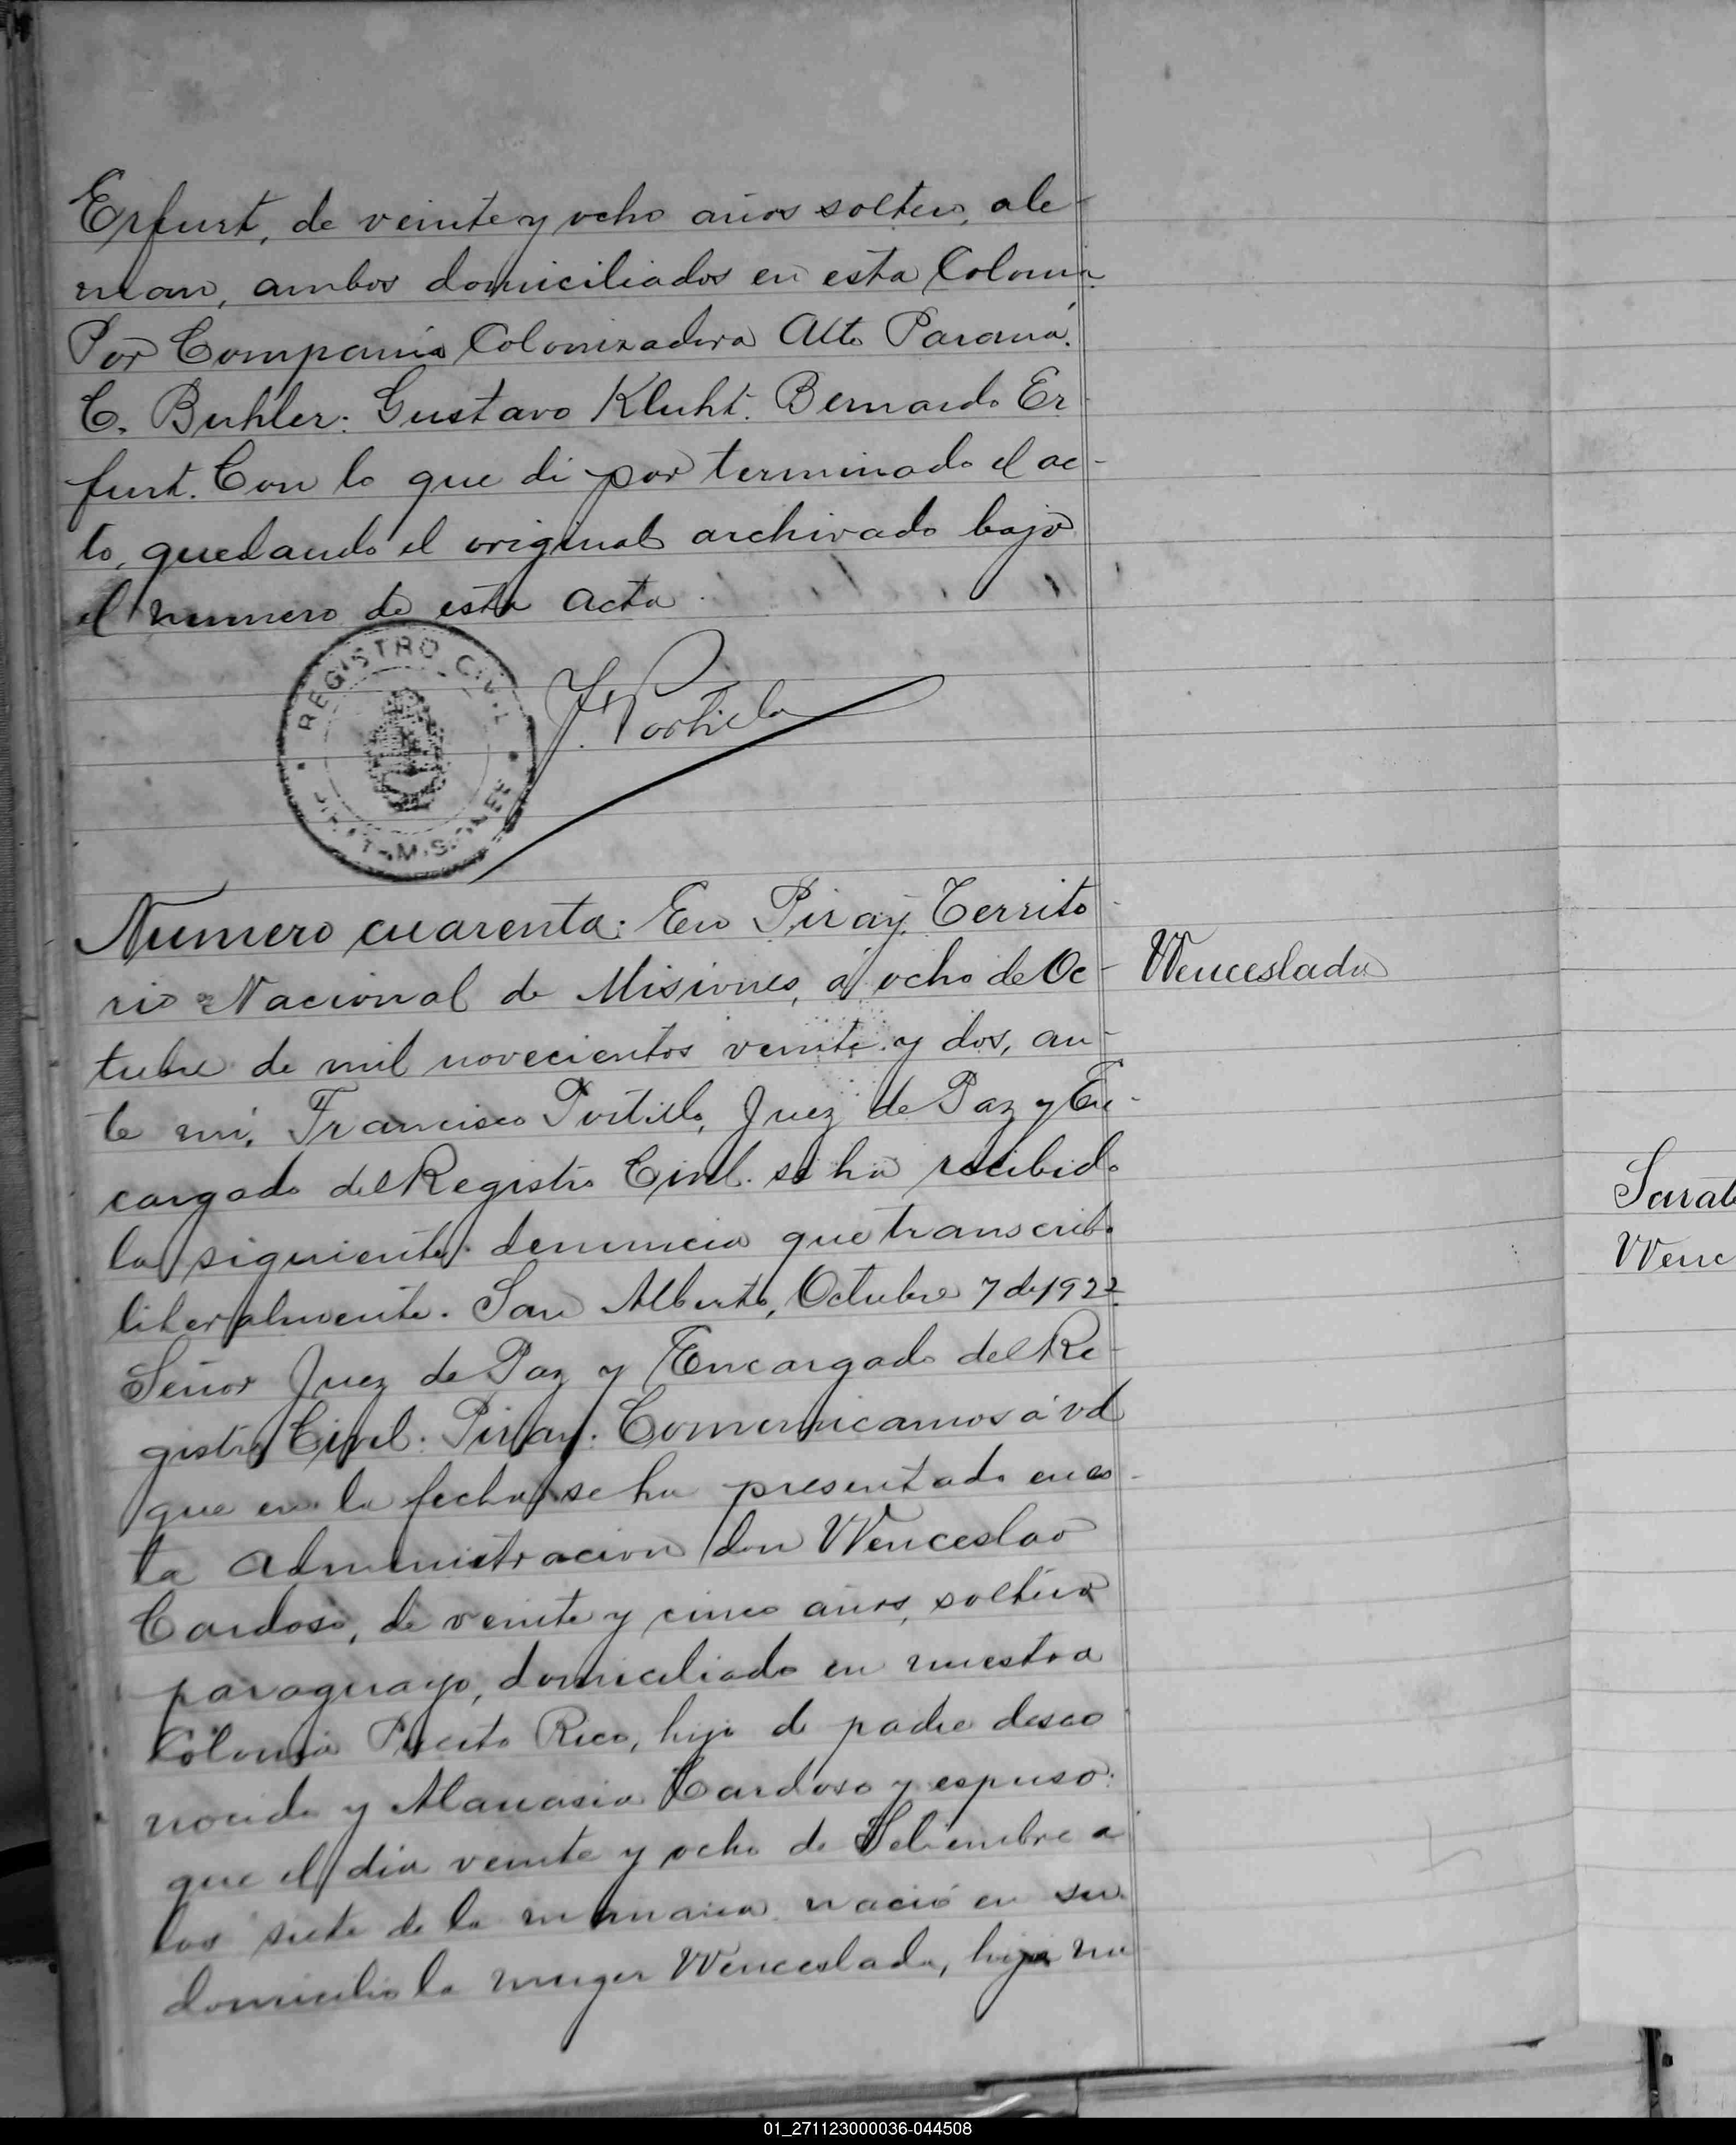 Erfurt, de veinte y ocho años soltero, ale-
man, ambos domiciliados en esta Coloni-
Por Compania Colonizadora Alto Paraná.
C. Buhler: Gustavo Kluht. Bernardo Er-
furt. Con lo que di por terminado el ac-
to, quedando el original archivado bajo
el numero de esta acta.
REGISTRO CIVIL
F. Portillo
Numero cuarenta: En Piray, Territo-
rio Nacional de Misiones, á ocho de Oc-
tubre de mil novecientos veinte y dos, an-
te mi, Francisco Portillo, Juez de Paz y En-
cargado del Registro Civil. se ha recibido
la siguiente denuncia que transcribo
literalmente. San Alberto, Octubre 7 de 1922
Señor Juez de Paz y Encargado del Re-
gistro Civil. Piray. Comunicamos á vd
que en la fecha se ha presentado en es-
ta administracion don Wenceslao
Cardoso, de veinte y cinco años, soltero
paraguayo, domiciliado en nuestra
Colonia Puerto Rico, hijo de padre desco
nocido y Atanasia Cardoso y espuso:
que el dia veinte y ocho de Setiembre a
las siete de la mañana nació en su
domicilio la muger Wenceslada, hija na
Wenceslada
Sarat
Wenc
01_271123000036-044508